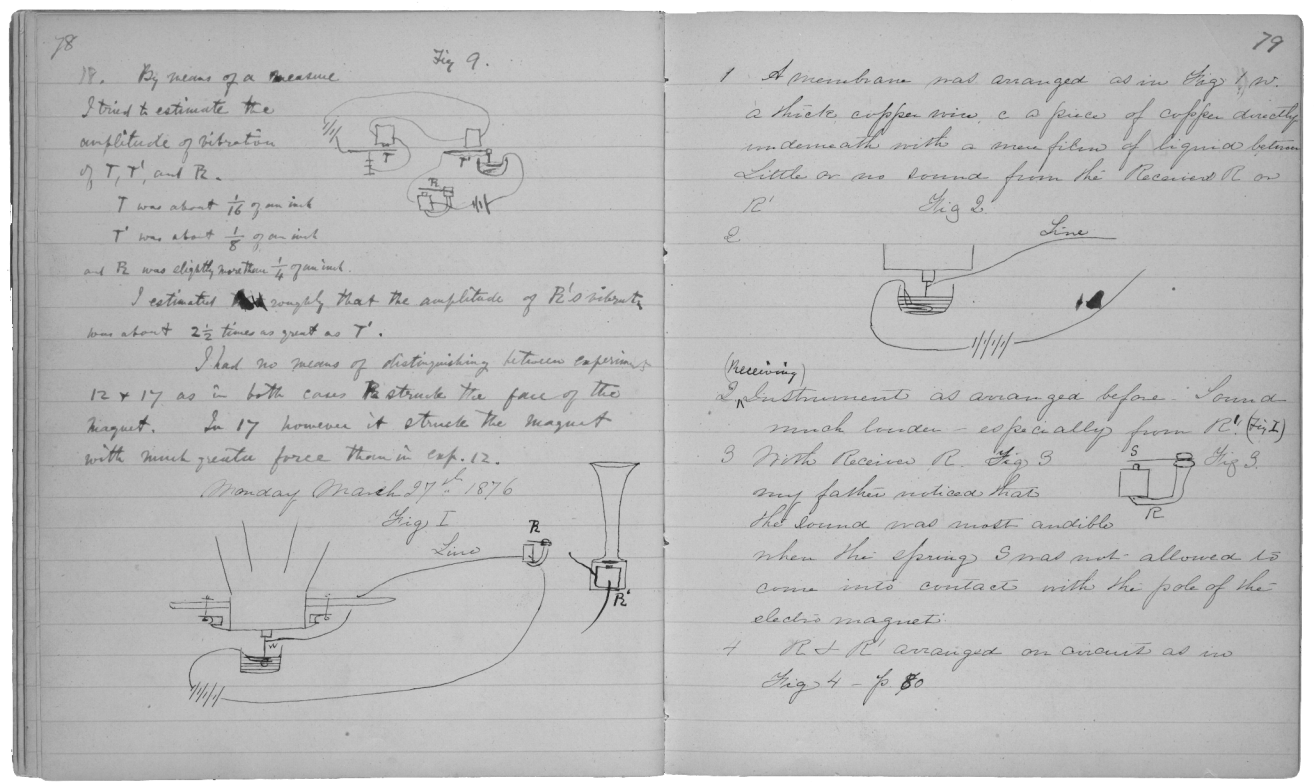 78
Fig 9.
18. By means of a measure
I tried to estimate the
amplitude of vibration
of T, T', and R.
T
T'
R
T was about 1/16 of an inch
T' was about 1/8 of an inch
and R was slightly more than 1/4 of an inch.
I estimated roughly that the amplitude of R's vibrat
was about 2 1/2 times as great as T'.
I had no means of distinguishing between experim
12 & 17 as in both cases R struck the face of the
magnet. In 17 however it struck the magnet
with much greater force than in exp. 12.
Monday March 27th 1876
Fig I
Line
R
R'
W
C
79
1 A membrane was arranged as in Fig 1, w.
a thick copper wire, c a piece of copper directly
underneath with a mere film of liquid between
Little or no sound from the Receiver R or
R'
Fig 2
2
Line
(Receiving)
2 ^ Instrument as arranged before. Sound
much louder – especially from R'. (Fig I.)
3 With Receiver R. Fig 3
S
Fig 3.
R
my father noticed that
the sound was most audible
when the spring S was not allowed to
come into contact with the pole of the
electro magnet.
4 R & R' arranged on circuit as in
Fig 4 – p 80